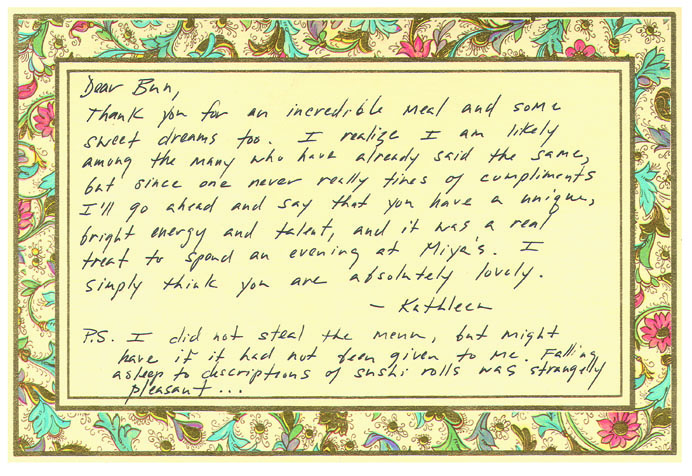 Dear Bun,
Thank you for an incredible meal and some
sweet dreams too. I realize I am likely
among the many who have already said the same,
but since one never really tires of compliments
I'll go ahead and say that you have a unique,
bright energy and talent, and it was a real
treat to spend an evening at Miya's. I
simply think you are absolutely lovely.
- Kathleen
P.S. I did not steal the menu, but might
have if it had not been given to me. Falling
asleep to descriptions of sushi rolls was strangely
pleasant...